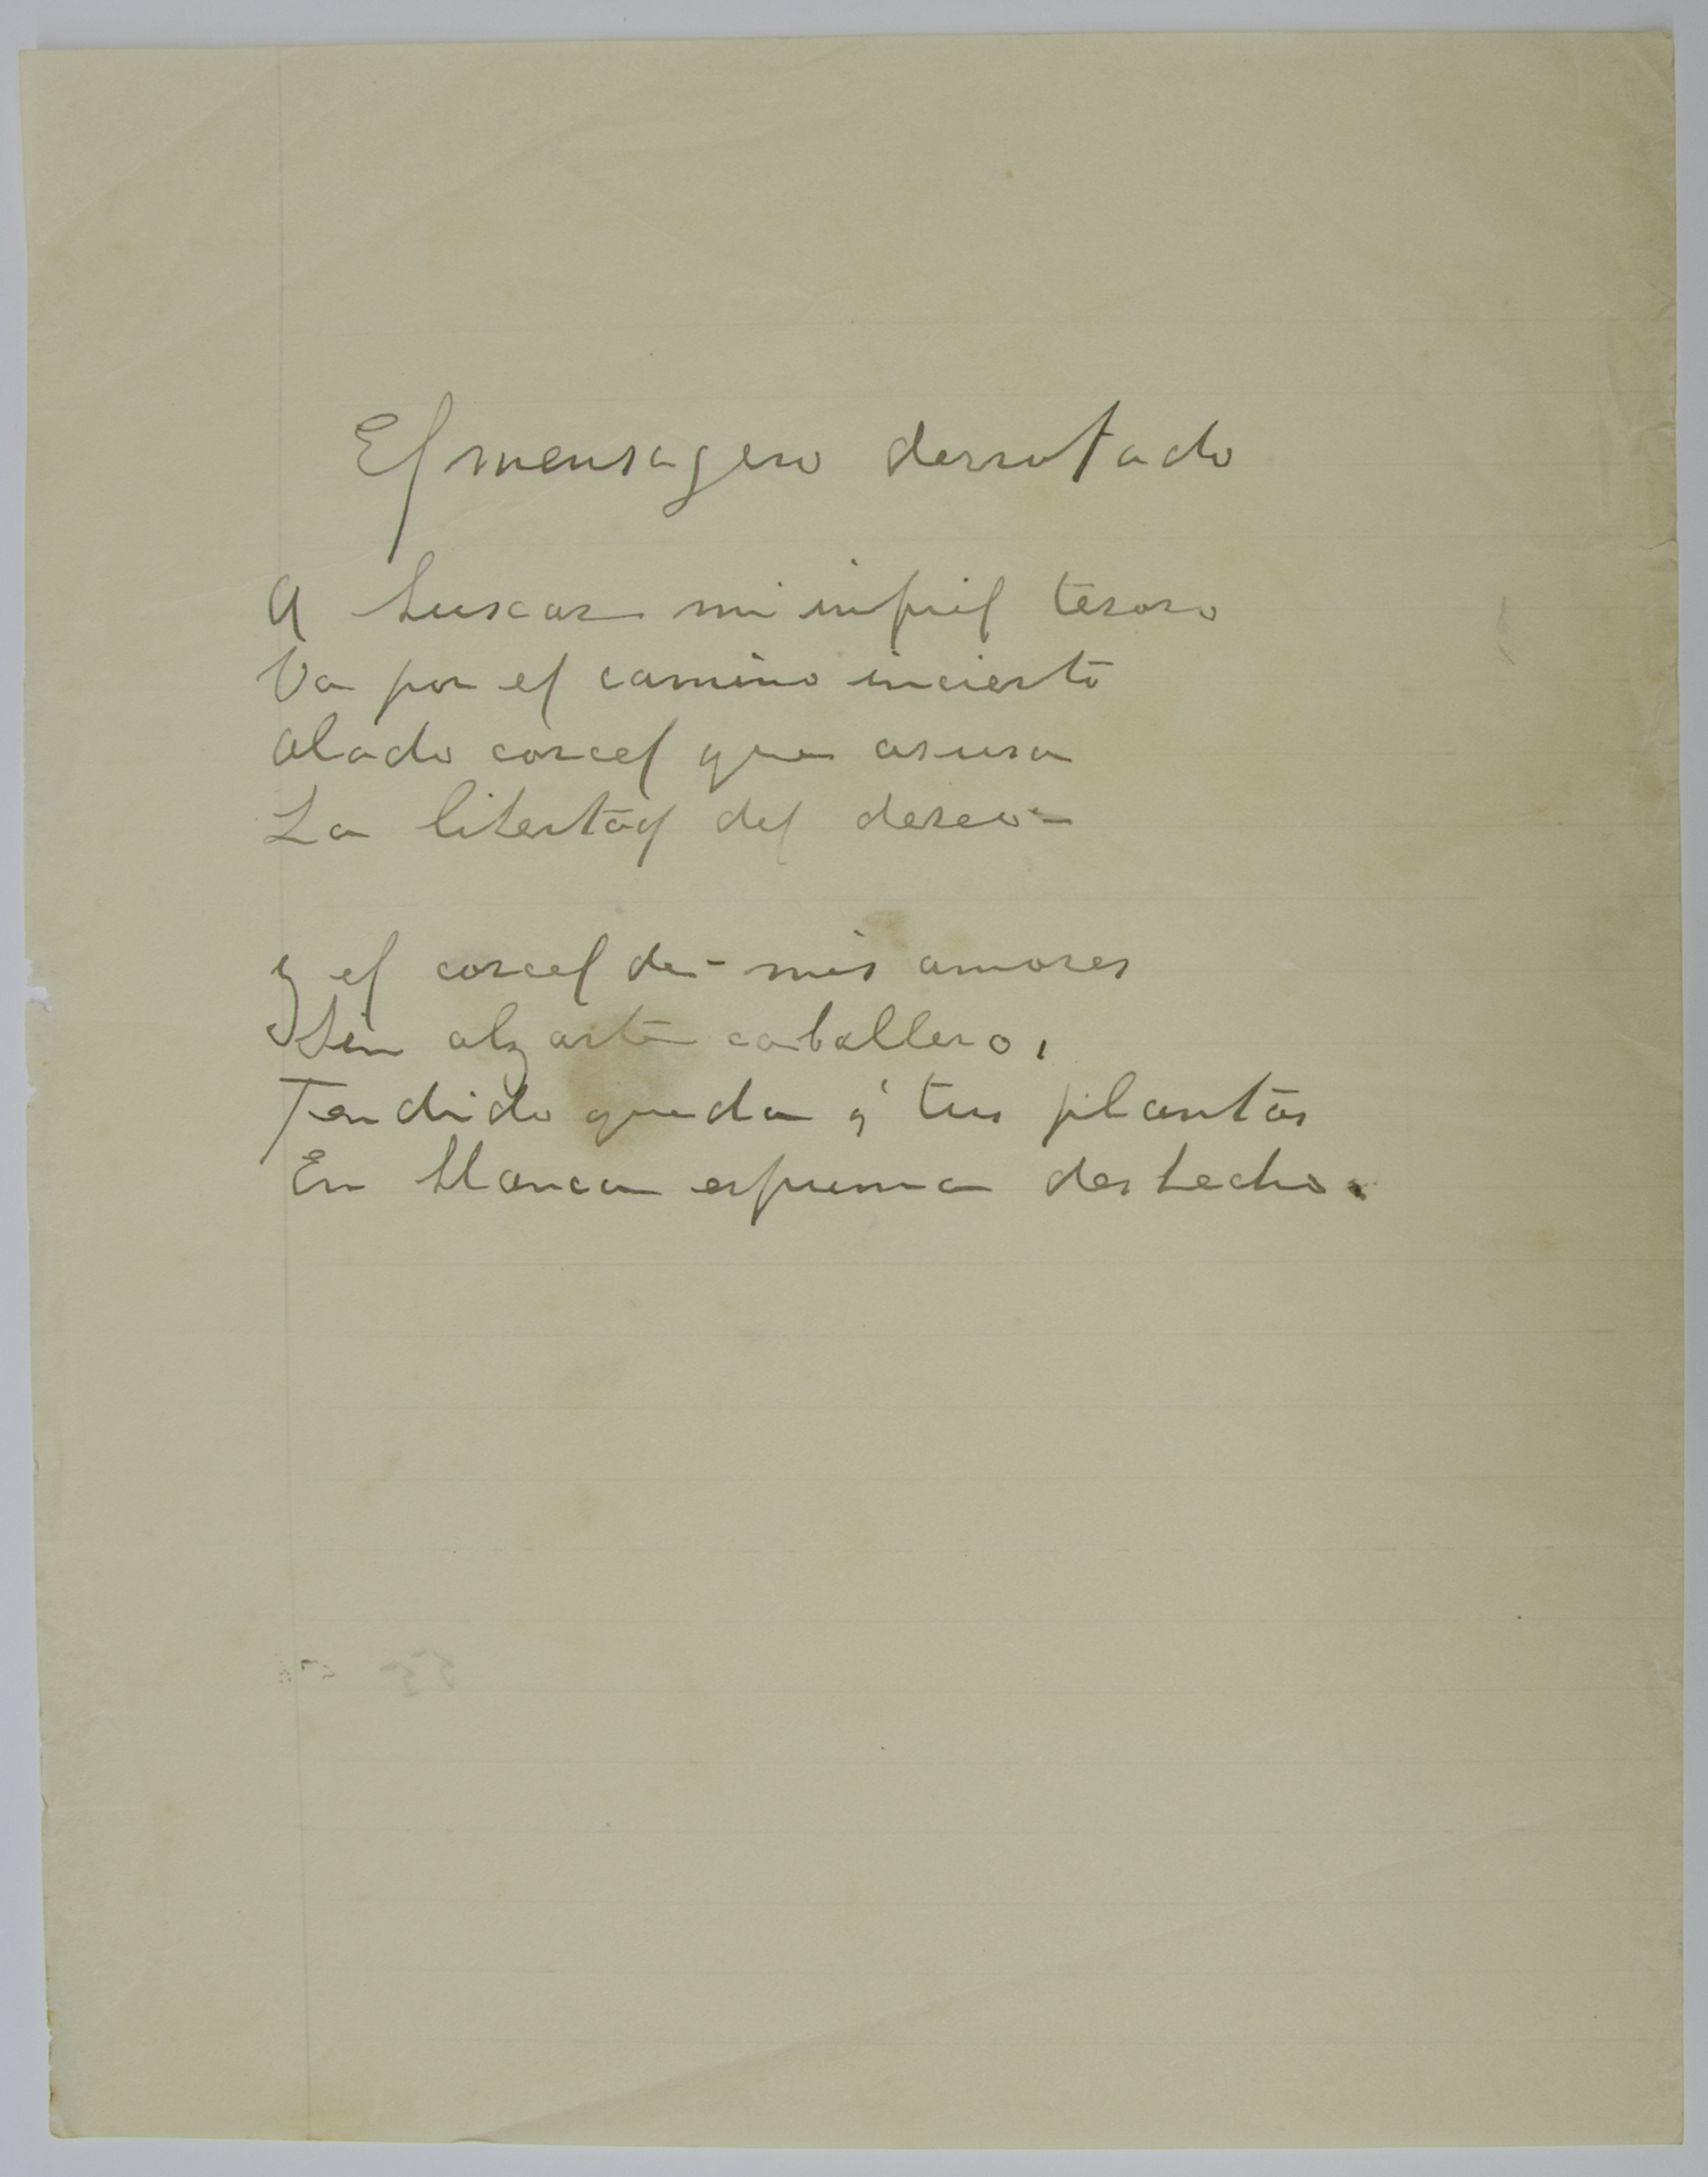 El mensagero derrotado
A buscar mi infiel tesoro
Va por el camino incierto
Alado corcel que asusa
La libertad del deseo
y el corcel de mis amores
Sin alzarte caballero,
Tendido queda á tus plantas
En blanca espuma deshecho.